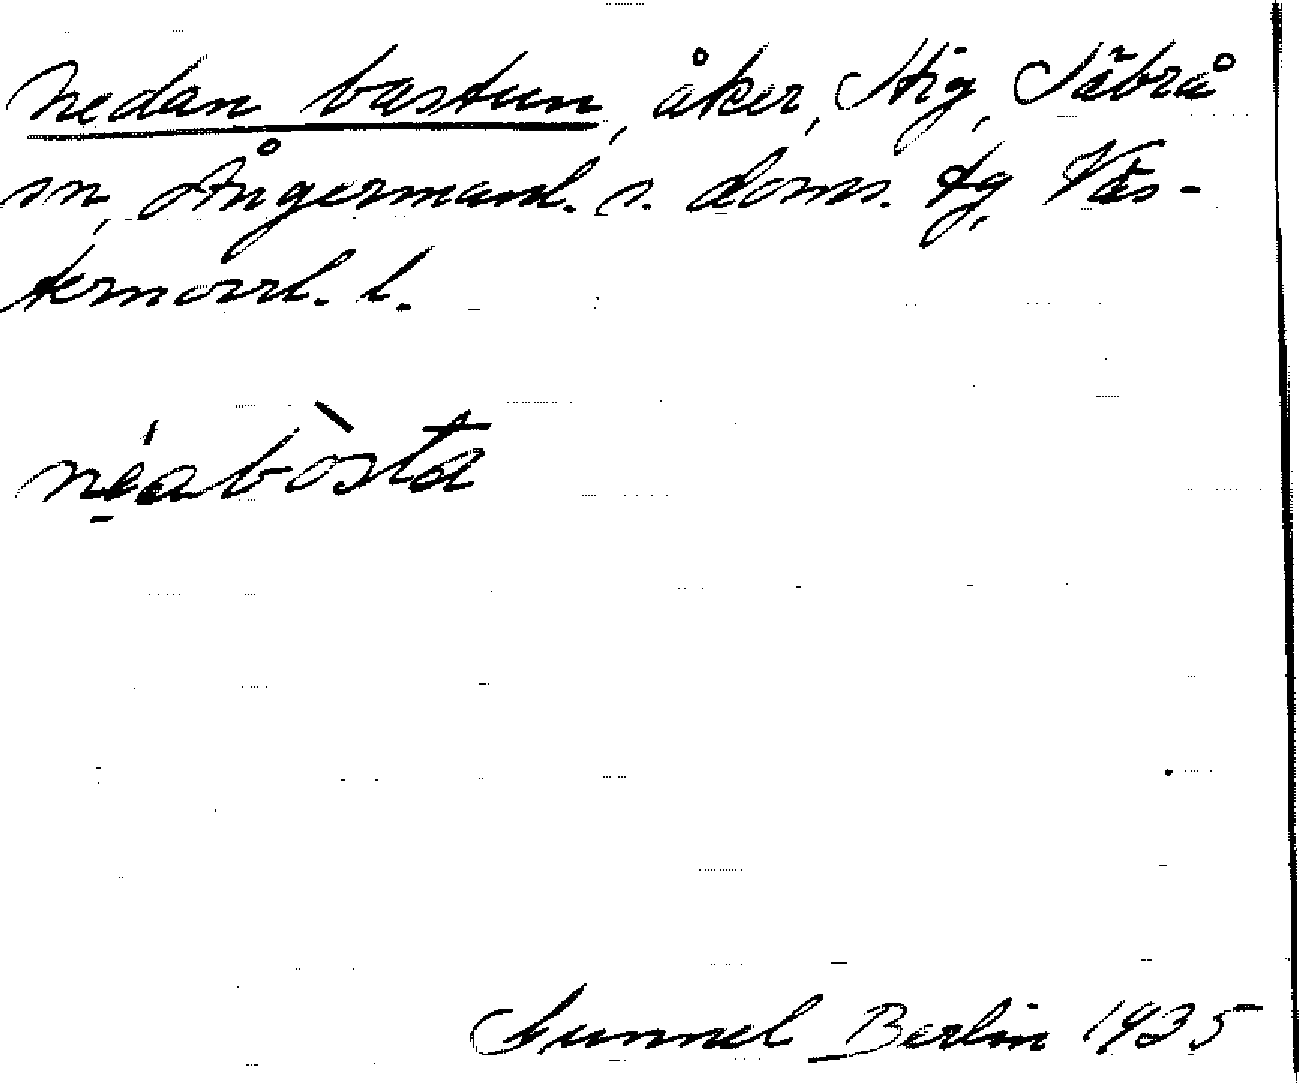 Nedan bastun, åker, Stig, Säbrå
sn, Ångermanl. s. doms. tg, Väs-
ternorrl. l.
néabòsta
Gunnel Berlin 1935